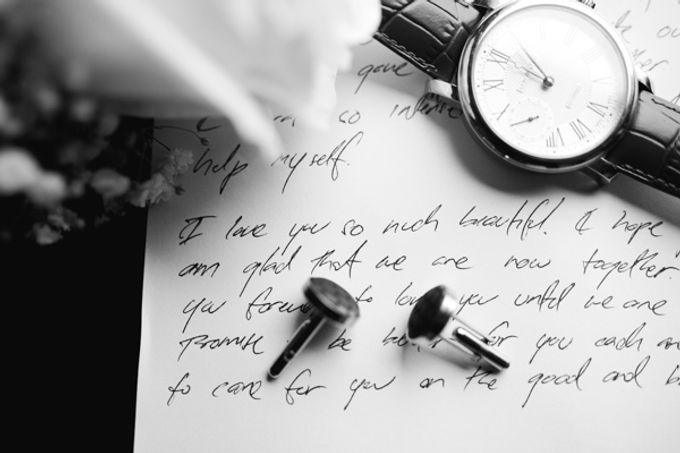 gave
so intense
help myself.
I love you so much beautiful. I hope
am glad that we are now together.
you to love you until we are
Promise be for you each
to care for you on the good and